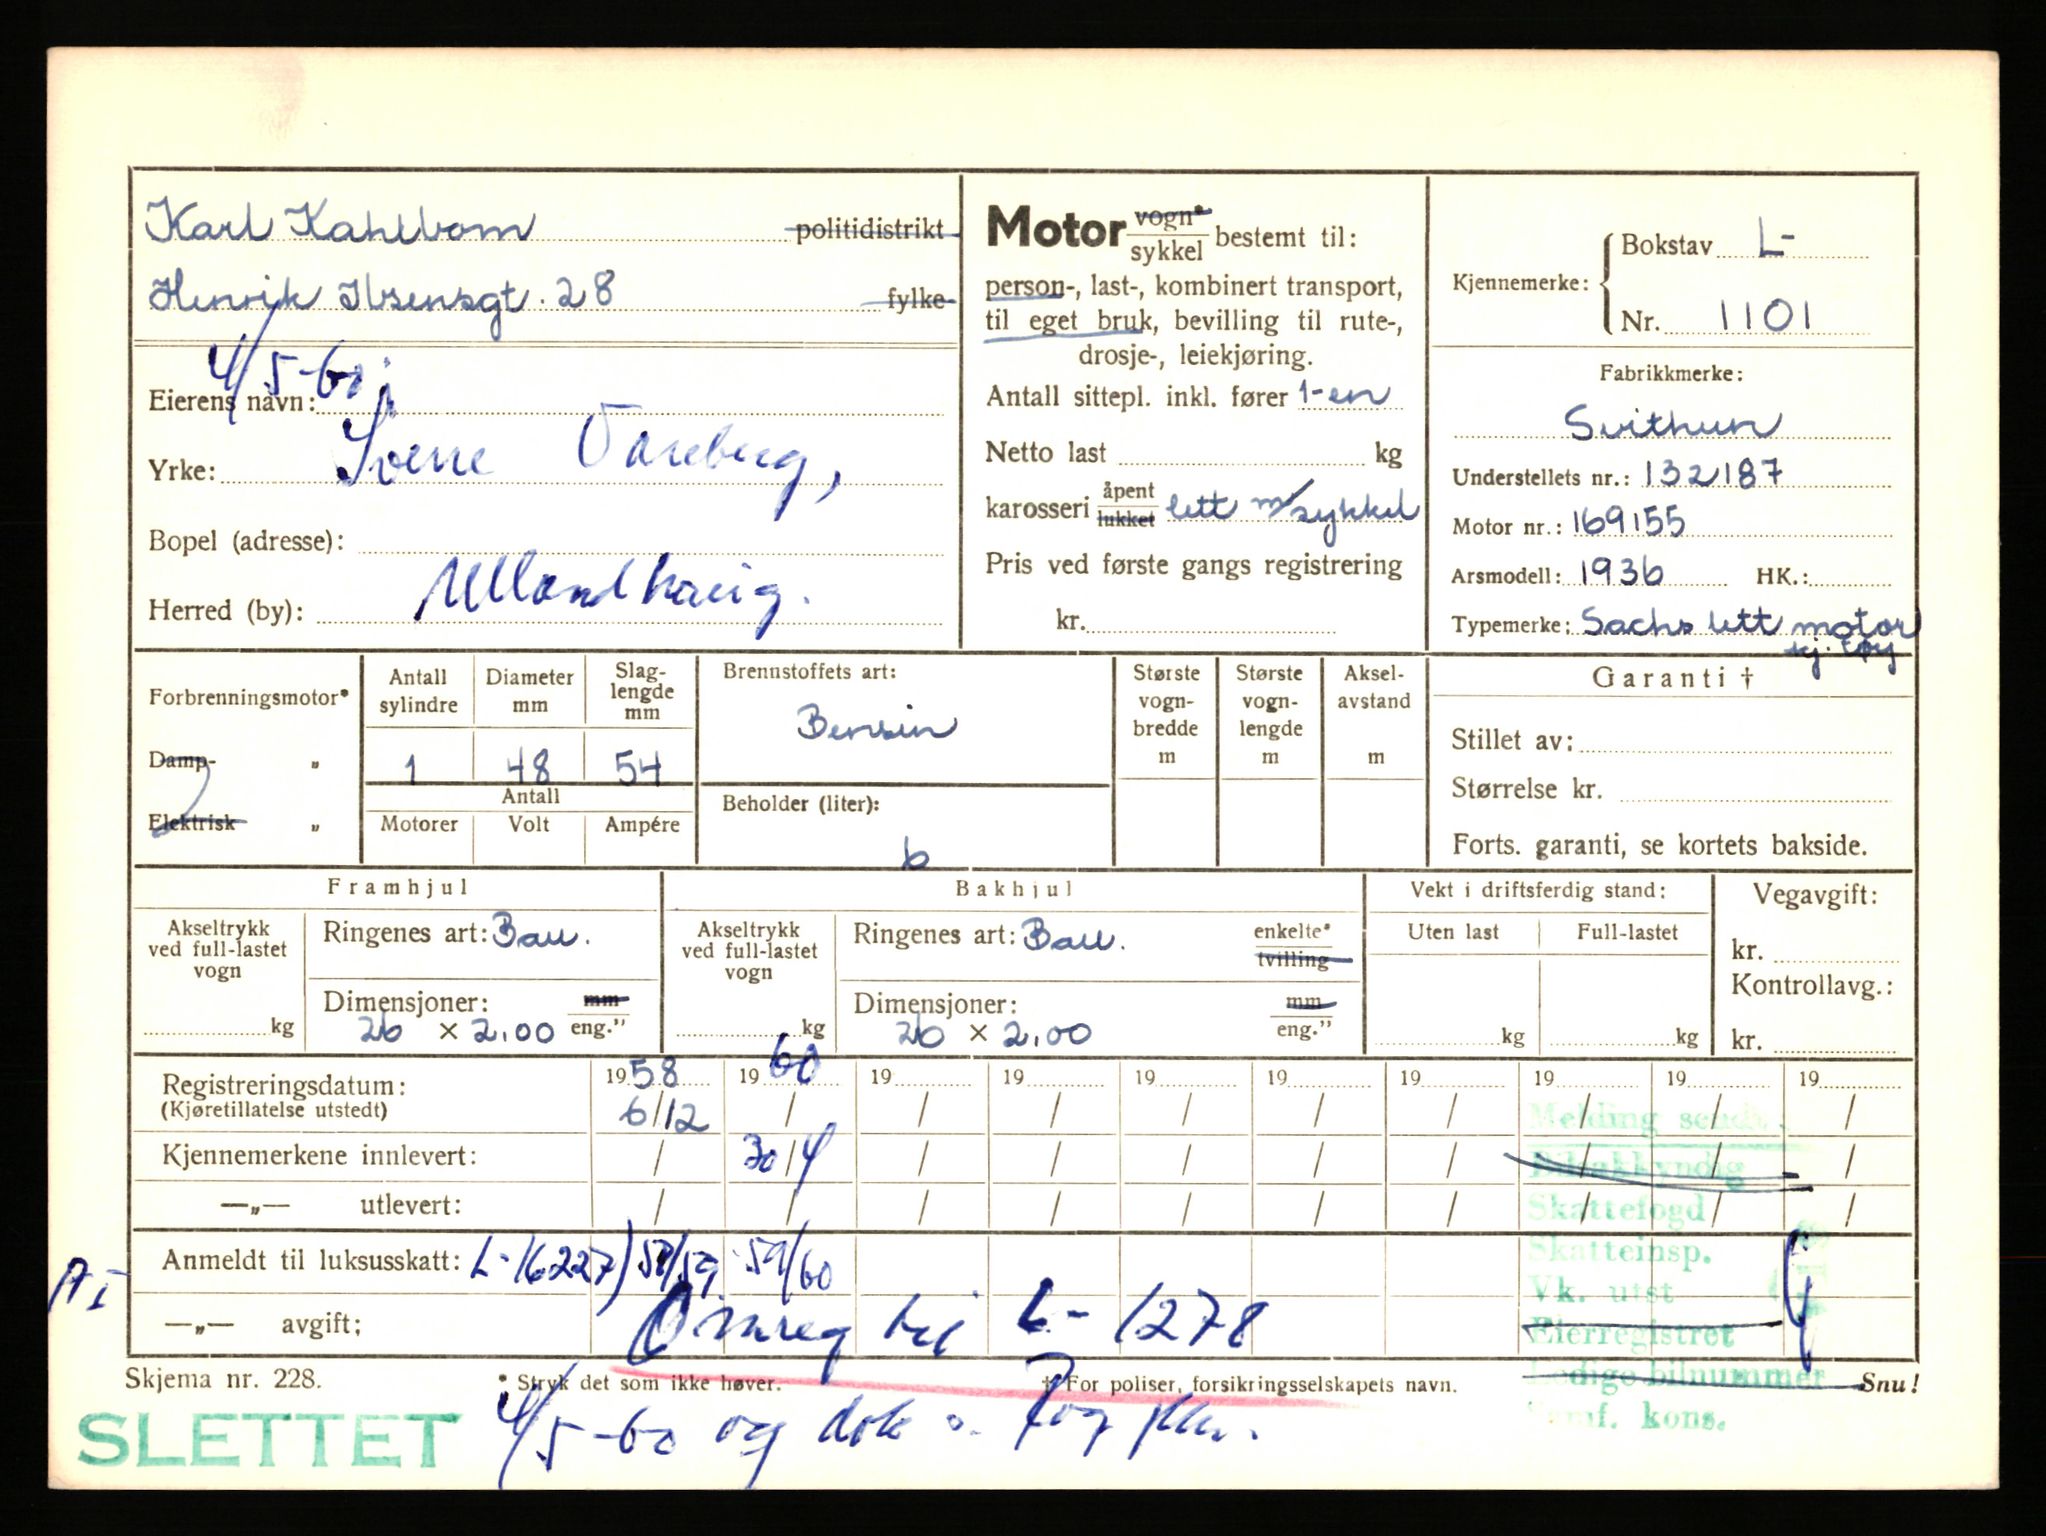 Karl Kahlbom politidistrikt
Henrik Ibsensgt. 28 fylke
4/5-60
Eierens navn:
Yrke: Sverre Vareberg,
Bopel (adresse):
Herred (by): Ullandhaug.
Motor vogn* sykkel bestemt til:
person-, last-, kombinert transport,
til eget bruk, bevilling til rute-,
drosje-, leiekjøring.
Antall sittepl. inkl. fører 1-en
Netto last kg
karosseri åpent lukket lett m/sykkel
Pris ved første gangs registrering
kr.
Kjennemerke: Bokstav L-
Nr. 1101
Fabrikkmerke:
Svithun
Understellets nr.: 132187
Motor nr.: 169155
Arsmodell: 1936 HK.:
Typemerke: Sachs lett motor
kj. tøy
Forbrenningsmotor*
Damp- „
Elektrisk „
Antall sylindre 1
Diameter mm 48
Slag-lengde mm 54
Antall
Motorer Volt Ampére
Brennstoffets art:
Bensin
Beholder (liter):
6
Største vogn-bredde m
Største vogn-lengde m
Aksel-avstand m
Garanti †
Stillet av:
Størrelse kr.
Forts. garanti, se kortets bakside.
Framhjul
Akseltrykk ved full-lastet vogn kg
Ringenes art: Ball.
Dimensjoner: mm
26 × 2.00 eng."
Bakhjul
Akseltrykk ved full-lastet vogn kg
Ringenes art: Ball. enkelte* tvilling
Dimensjoner: mm
26 × 2.00 eng."
Vekt i driftsferdig stand:
Uten last Full-lastet
kg kg
Vegavgift:
kr.
Kontrollavg.:
kr.
Registreringsdatum: 1958 1960 19 19 19 19 19 19 19 19
(Kjøretillatelse utstedt) 6/12 / / / / / / / / /
Kjennemerkene innlevert: / 30/4 / / / / / / / /
—„— utlevert: / / / / / / / / / /
Anmeldt til luksusskatt: L-16227) 58/59 59/60
—„— avgift; Omreg til L-1278
Melding sendt
Bilsakkyndig
Skattefogd
Skatteinsp.
Vk. utst
Eierregistret
Ledige bilnummer
Samf. kons.
Skjema nr. 228. * Stryk det som ikke høver. † For poliser, forsikringsselskapets navn. Snu!
SLETTET 4/5-60 og dok